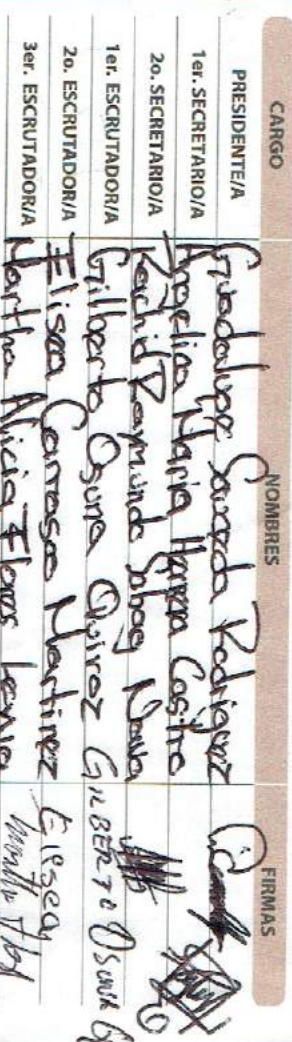 CARGO NOMBRES FIRMAS
PRESIDENTE/A Guadalupe Sauceda Rodriguez
1er. SECRETARIO/A Angelica Maria Herrera Castro
2o. SECRETARIO/A Rachid Raymundo Sabag Nava
1er. ESCRUTADOR/A Gilberto Osuna Quiroz GILBERTO Osuna Q
2o. ESCRUTADOR/A Elisea Carrasco Martinez Elisea
3er. ESCRUTADOR/A Martha Alicia Flores